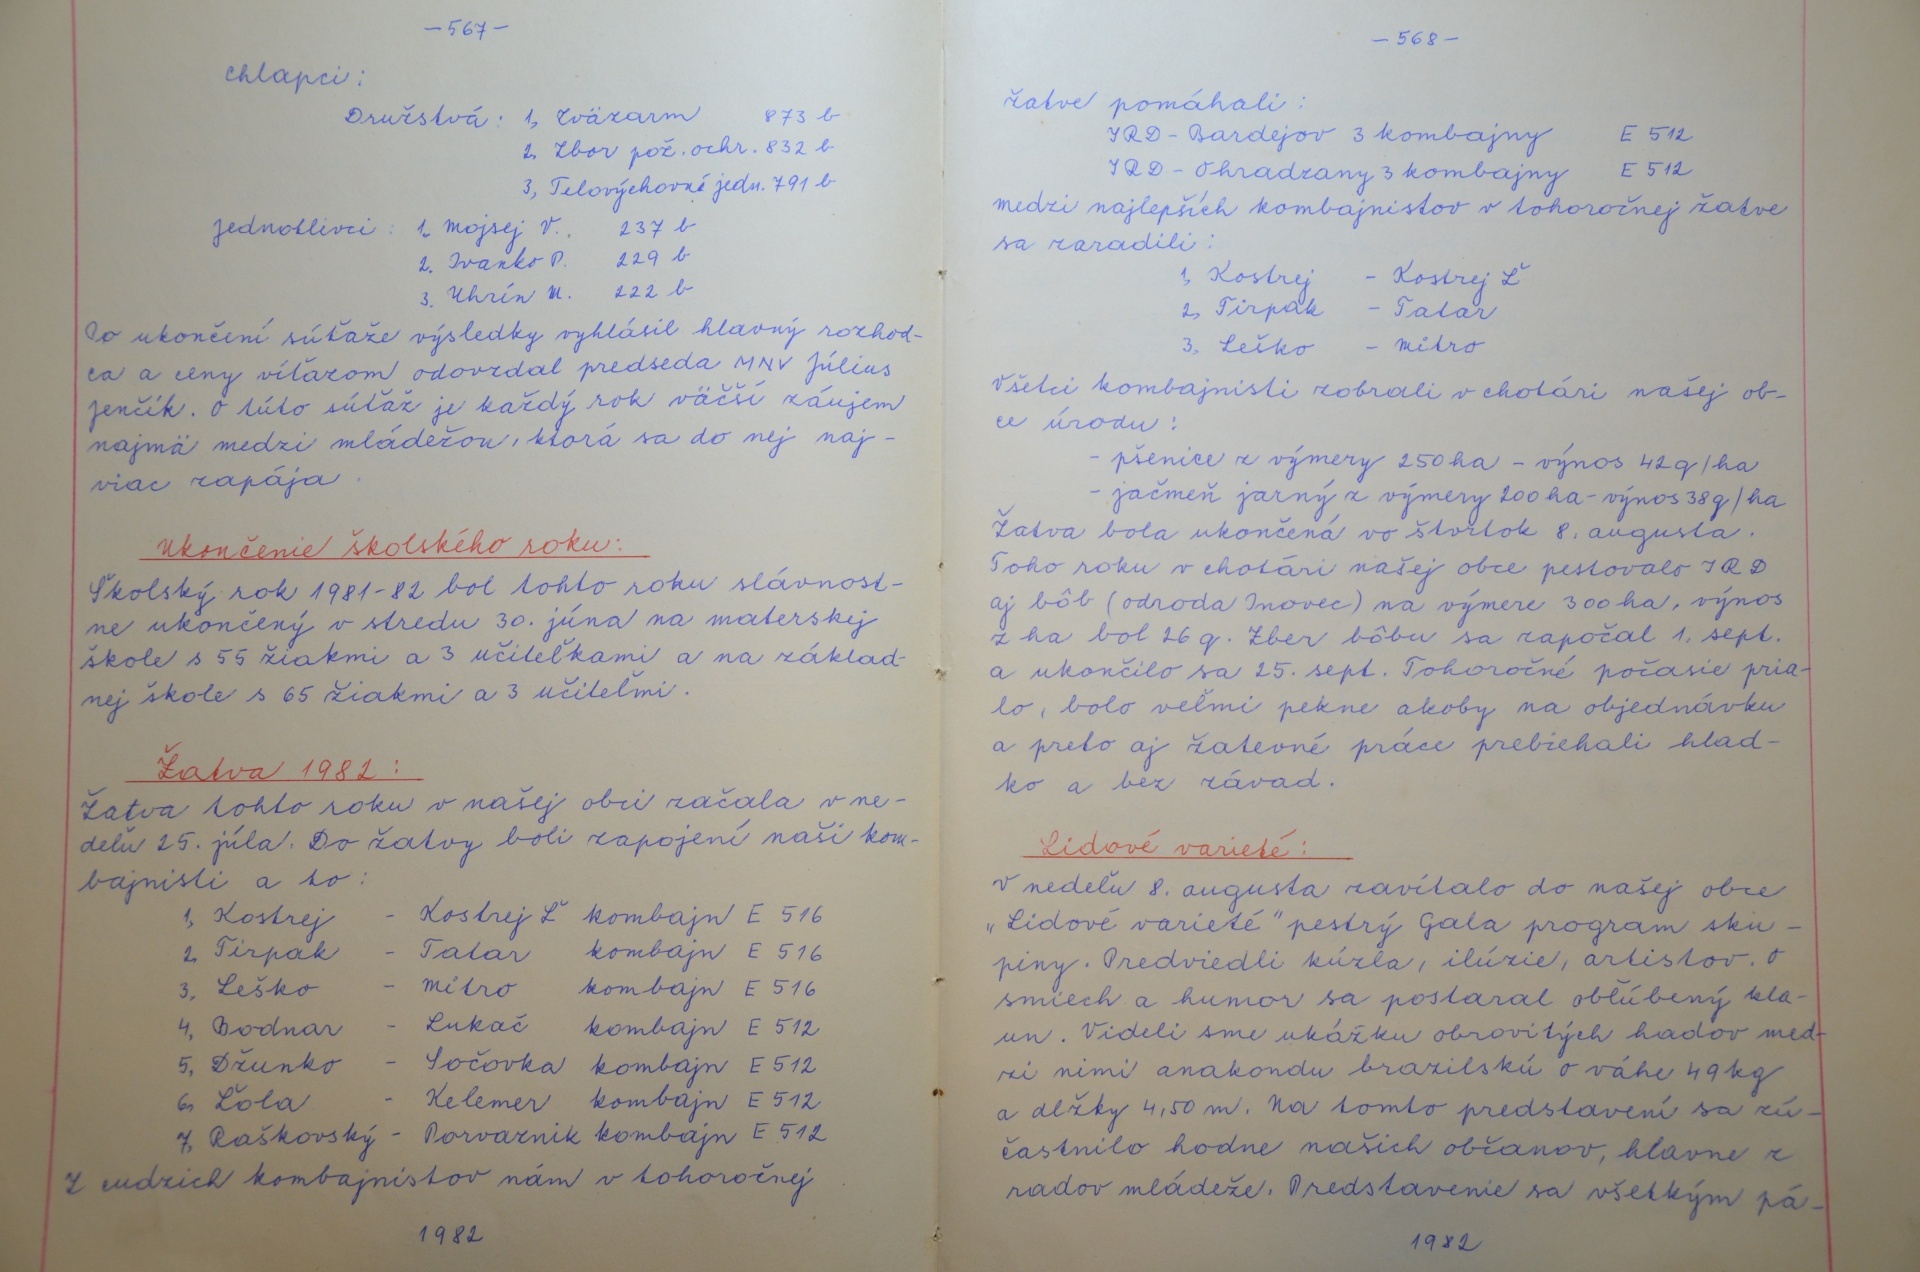 -567-
chlapci:
Družstvá: 1, Zväzarm 873 b
2, Zbor pož. ochr. 832 b
3, Telovýchovná jedn. 791 b
jednotlivci: 1. Mojsej V. 237 b
2. Ivanko P. 229 b
3. Uhrín M. 222 b
Po ukončení súťaže výsledky vyhlásil hlavný rozhod-
ca a ceny víťazom odovzdal predseda MNV Július
Jenčík. O túto súťaž je každý rok väčší záujem
najmä medzi mládežou, ktorá sa do nej naj-
viac zapája.
Ukončenie školského roku:
Školský rok 1981-82 bol tohto roku slávnost-
ne ukončený v stredu 30. júna na materskej
škole s 55 žiakmi a 3 učiteľkami a na základ-
nej škole s 65 žiakmi a 3 učiteľmi.
Žatva 1982:
Žatva tohto roku v našej obci začala v ne-
deľu 25. júla. Do žatvy boli zapojení naši kom-
bajnisti a to:
1, Kostrej - Kostrej Ľ kombajn E 516
2, Tirpak - Tatar kombajn E 516
3, Leško - Mitro kombajn E 516
4, Bodnar - Lukač kombajn E 512
5, Džunko - Sočovka kombajn E 512
6, Lola - Kelemer kombajn E 512
7, Raškovský - Porvaznik kombajn E 512
Z cudzich kombajnistov nám v tohoročnej
1982
-568-
žatve pomáhali:
JRD - Bardejov 3 kombajny E 512
JRD - Ohradzany 3 kombajny E 512
medzi najlepších kombajnistov v tohoročnej žatve
sa zaradili:
1, Kostrej - Kostrej Ľ
2, Tirpak - Tatar
3, Leško - Mitro
Všetci kombajnisti zobrali v chotári našej ob-
ce úrodu:
- pšenice z výmery 250 ha - výnos 42 q/ha
- jačmeň jarný z výmery 200 ha - výnos 38 q/ha
Žatva bola ukončená vo štvrtok 8. augusta.
Toho roku v chotári našej obce pestovalo JRD
aj bôb (odroda Inovec) na výmere 300 ha, výnos
z ha bol 26 q. Zber bôbu sa započal 1. sept.
a ukončilo sa 25. sept. Tohoročné počasie pria-
lo, bolo veľmi pekne akoby na objednávku
a preto aj žatevné práce prebiehali hlad-
ko a bez závad.
Lidové varieté:
V nedeľu 8. augusta zavítalo do našej obce
„Lidové varieté" pestrý Gala program sku-
piny. Predviedli kúzla, ilúzie, artistov. O
smiech a humor sa postaral obľúbený kla-
un. Videli sme ukážku obrovitých hadov med-
zi nimi anakondu brazilskú o váhe 49 kg
a dlžky 4,50 m. Na tomto predstavení sa zú-
častnilo hodne našich občanov, hlavne z
radov mládeže. Predstavenie sa všetkým pá-
1982